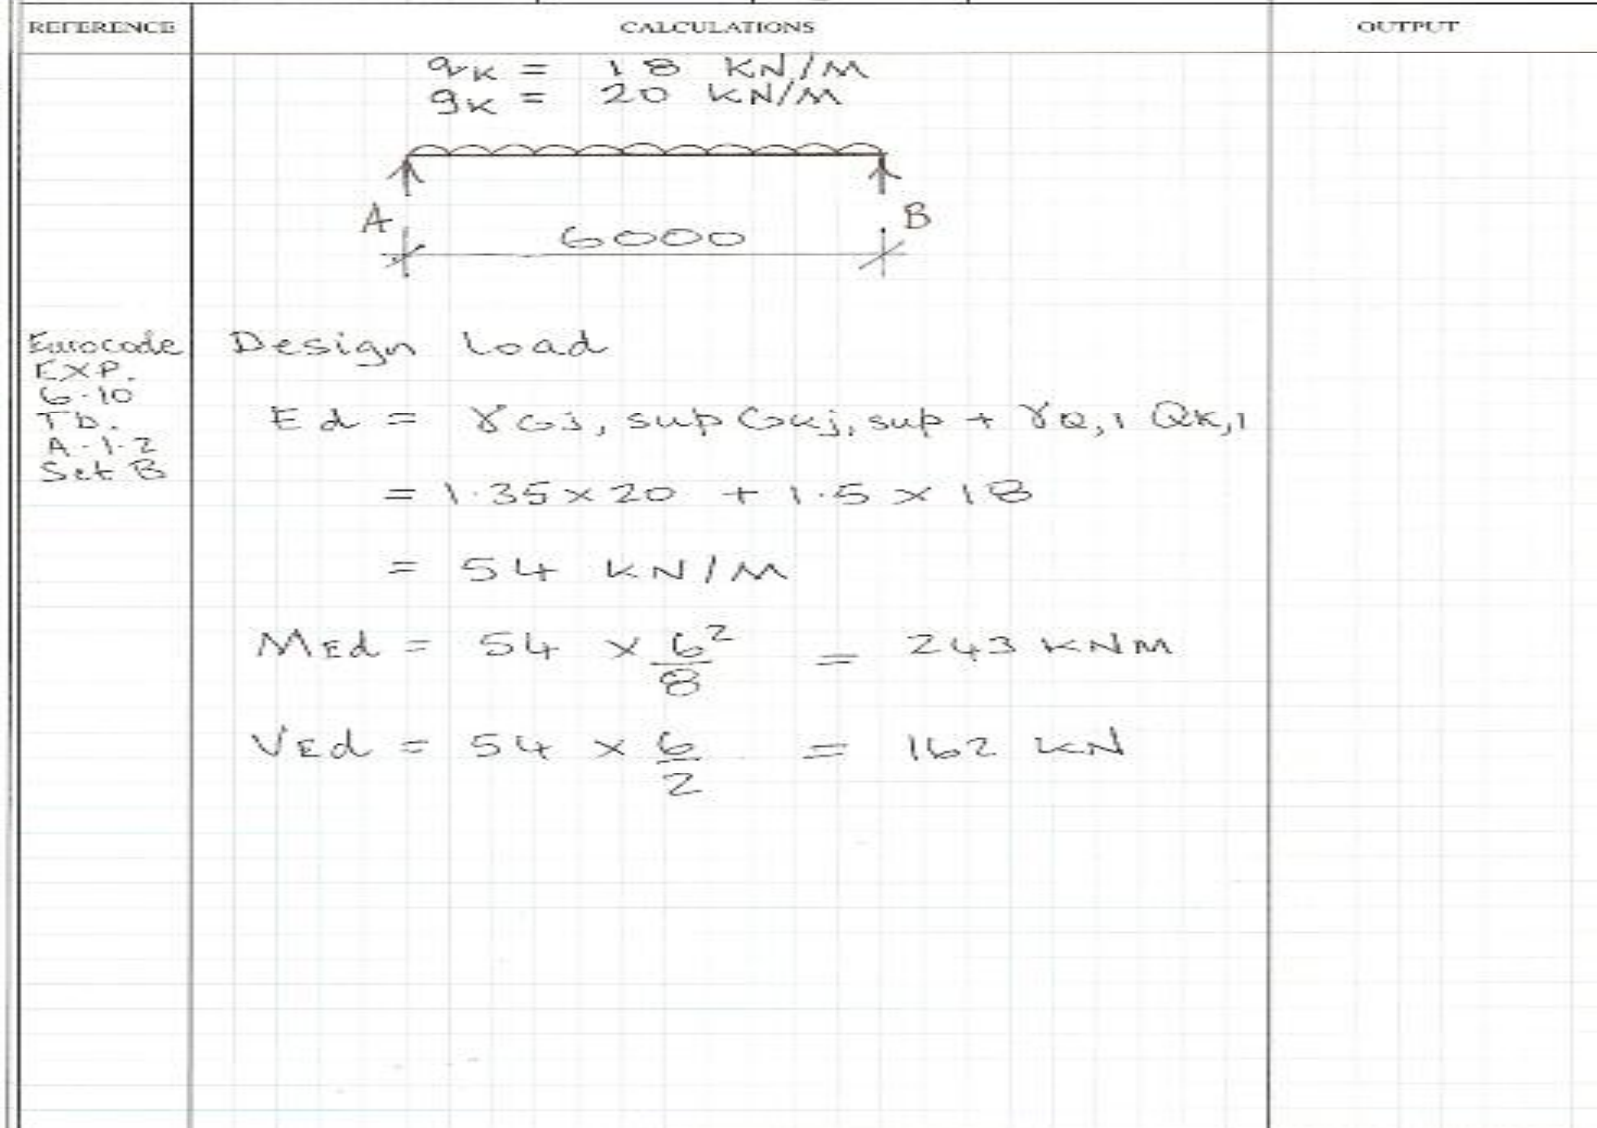 REFERENCE CALCULATIONS OUTPUT
qk = 18 KN/M
gk = 20 KN/M
A B
6000
Eurocode
EXP.
6.10
Tb.
A.1.2
Set B
Design Load
Ed = γGj, sup Gkj, sup + γQ,1 Qk,1
= 1.35 × 20 + 1.5 × 18
= 54 KN/M
MEd = 54 × 6²/8 = 243 KNM
VEd = 54 × 6/2 = 162 KN